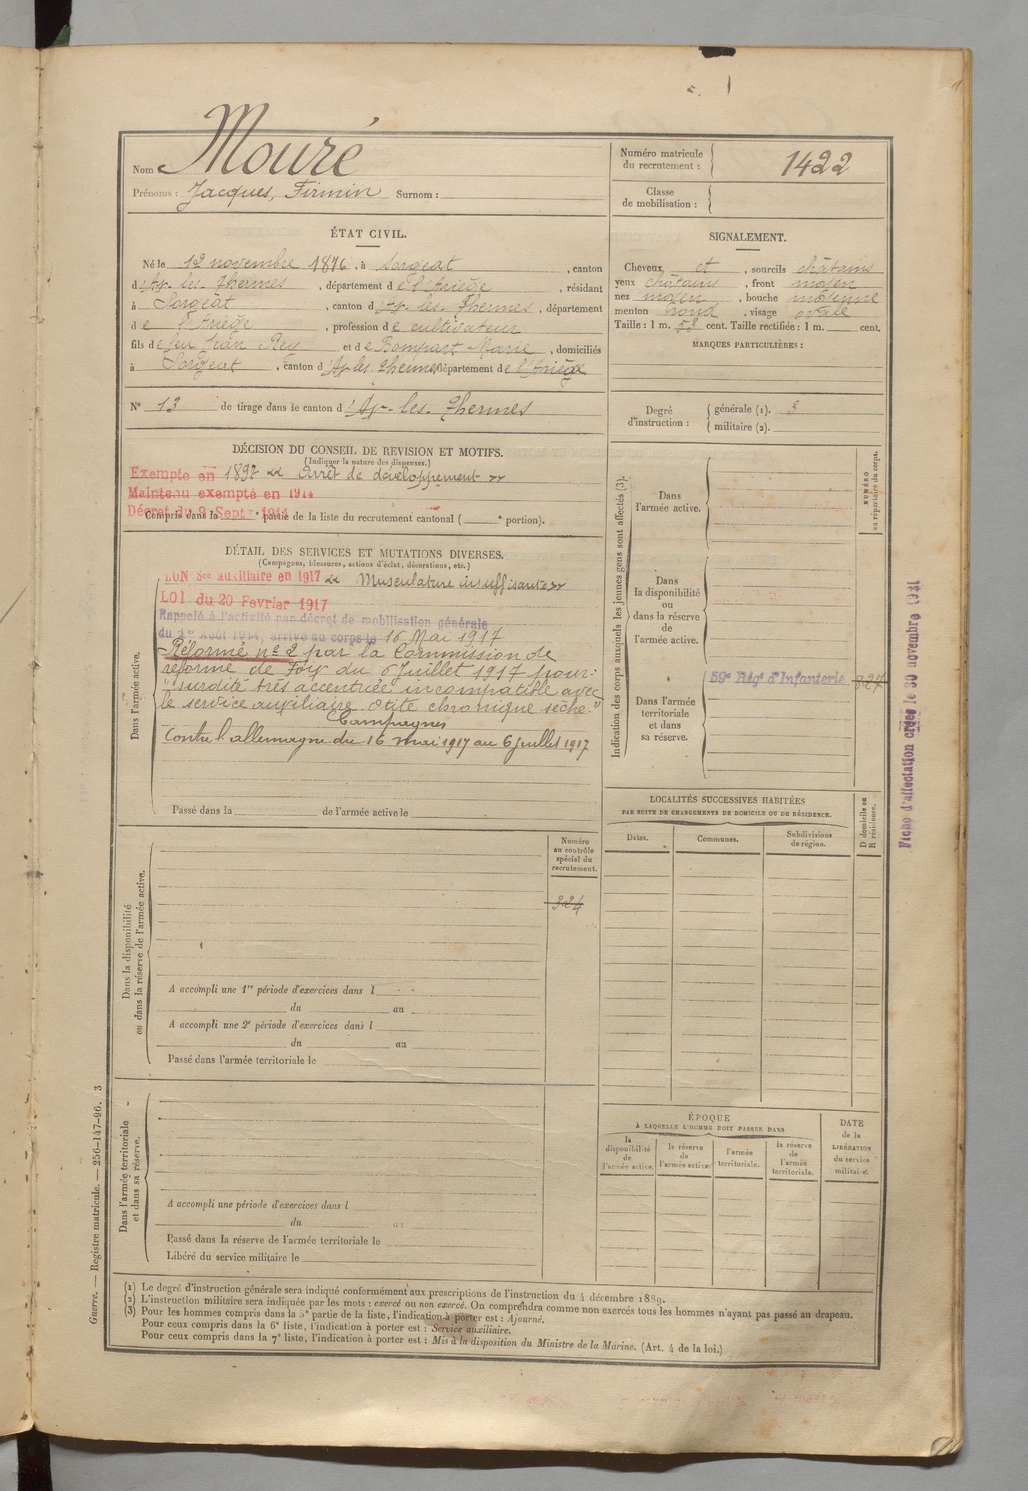 Nom Mouré
Prénoms : Jacques, Firmin Surnom :
Numéro matricule du recrutement : 1422
Classe de mobilisation :
ÉTAT CIVIL.
Né le 12 novembre 1876, à Sorgeat, canton
d'Ax-les-Thermes, département de l'Ariège, résidant
à Sorgeat, canton d'Ax-les-Thermes, département
de l'Ariège, profession de cultivateur
fils de feu Jean Rey et de Rompart Marie, domiciliés
à Sorgeat, canton d'Ax-les-Thermes département de l'Ariège
N° 13 de tirage dans le canton d'Ax-les-Thermes
SIGNALEMENT.
Cheveux et, sourcils châtains
yeux châtains, front moyen
nez moyen, bouche moyenne
menton rond, visage ovale
Taille : 1 m. 53 cent. Taille rectifiée : 1 m. cent.
MARQUES PARTICULIÈRES :
Degré d'instruction : générale (1). 3
militaire (2).
DÉCISION DU CONSEIL DE REVISION ET MOTIFS.
(Indiquer la nature des dispenses.)
Exempté en 1897 « Arrêt de développement »
Maintenu exempté en 1914
Décret du 9 Sept 1914
Compris dans la e partie de la liste du recrutement cantonal ( e portion).
DÉTAIL DES SERVICES ET MUTATIONS DIVERSES.
(Campagnes, blessures, actions d'éclat, décorations, etc.)
Dans l'armée active.
BON Sce auxiliaire en 1917 « Musculature insuffisante »
LOI du 20 Février 1917
Rappelé à l'activité par décret de mobilisation générale
du 1er Août 1914, arrivé au corps le 16 Mai 1917
Réformé n° 2 par la Commission de
réforme de Foix du 6 Juillet 1917 pour :
"surdité très accentuée incompatible avec
le service auxiliaire otite chronique sèche."
Campagnes
Contre l'allemagne du 16 mai 1917 au 6 juillet 1917
Passé dans la de l'armée active le
Indication des corps auxquels les jeunes gens sont affectés (3).
NUMÉRO au répertoire du corps.
Dans l'armée active.
Dans la disponibilité ou dans la réserve de l'armée active.
Dans l'armée territoriale et dans sa réserve.
59e Régt d'Infanterie 827
Fiche d'affectation créée le 30 novembre 1931
LOCALITÉS SUCCESSIVES HABITÉES
PAR SUITE DE CHANGEMENTS DE DOMICILE OU DE RÉSIDENCE.
D domicile ou R résidence.
Dates. Communes. Subdivisions de région.
Dans la disponibilité ou dans la réserve de l'armée active.
Numéro au contrôle spécial du recrutement.
324
A accompli une 1re période d'exercices dans l
du au
A accompli une 2e période d'exercices dans l
du au
Passé dans l'armée territoriale le
Dans l'armée territoriale et dans sa réserve.
A accompli une période d'exercices dans l
du au
Passé dans la réserve de l'armée territoriale le
Libéré du service militaire le
ÉPOQUE
À LAQUELLE L'HOMME DOIT PASSER DANS
la disponibilité de l'armée active.
la réserve de l'armée active.
l'armée territoriale.
la réserve de l'armée territoriale.
DATE de la LIBÉRATION du service militaire.
(1) Le degré d'instruction générale sera indiqué conformément aux prescriptions de l'instruction du 4 décembre 1889.
(2) L'instruction militaire sera indiquée par les mots : exercé ou non exercé. On comprendra comme non exercés tous les hommes n'ayant pas passé au drapeau.
(3) Pour les hommes compris dans la 5e partie de la liste, l'indication à porter est : Ajourné.
Pour ceux compris dans la 6e liste, l'indication à porter est : Service auxiliaire.
Pour ceux compris dans la 7e liste, l'indication à porter est : Mis à la disposition du Ministre de la Marine. (Art. 4 de la loi.)
Guerre. — Registre matricule. — 256-147-96. 3